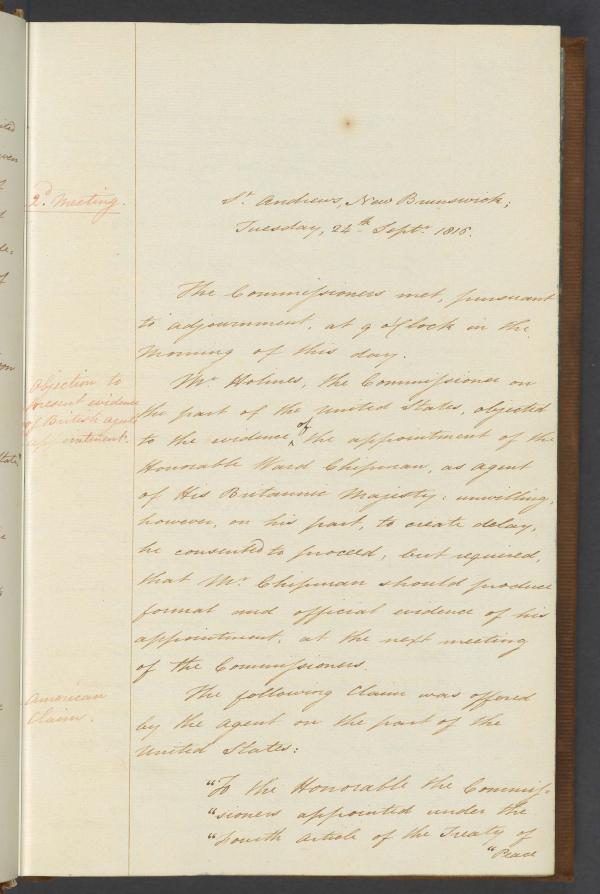 2d. Meeting.
St. Andrews, New Brunswick;
Tuesday, 24th Septr. 1816.
The Commissioners met, pursuant
to adjournment, at 9 o'Clock in the
Morning of this day.
Objection to
present evidence
of British agent's
appointment.
Mr Holmes, the Commissioner on
the part of the United States, objected
to the evidence of the appointment of the
Honorable Ward Chipman, as agent
of His Britannic Majesty: unwilling,
however, on his part, to create delay,
he consented to proceed, but required,
that Mr Chipman should produce
formal and official evidence of his
appointment, at the next meeting
of the Commissioners.
American
Claim.
The following Claim was offered
by the agent on the part of the
United States:
"To the Honorable the Commis-
"sioners appointed under the
"fourth article of the Treaty of
"Peace